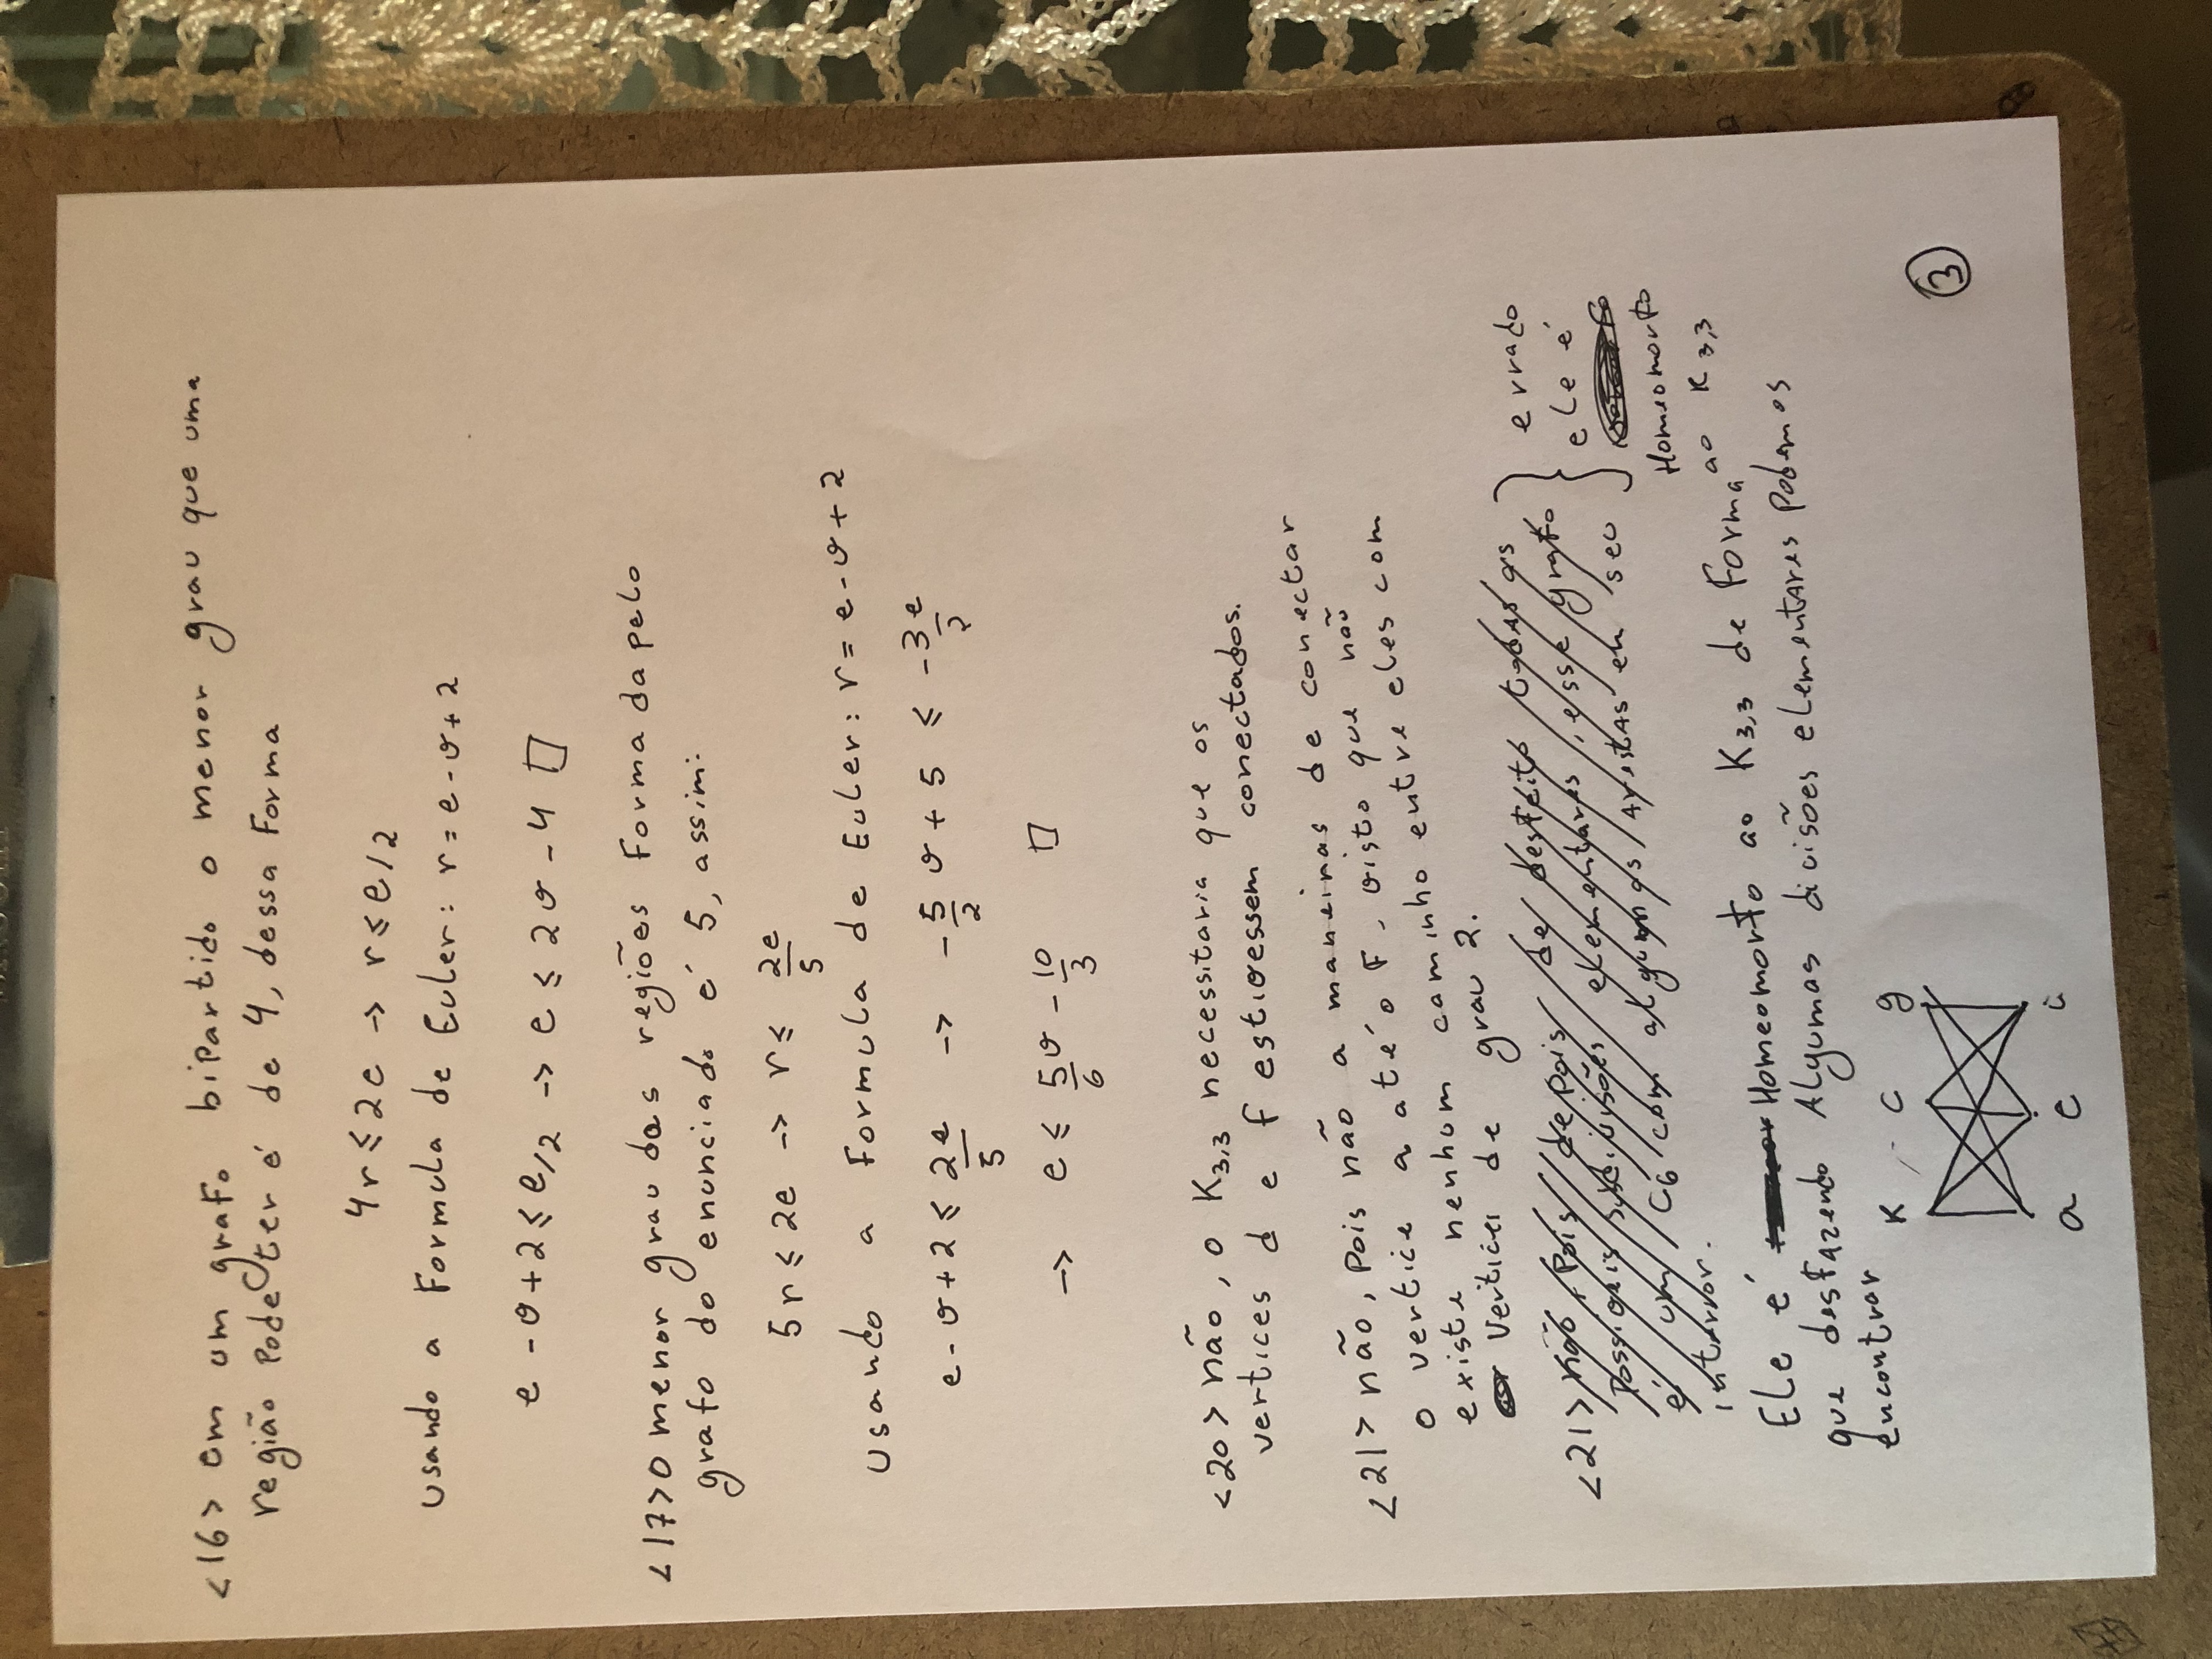 <16> em um grafo bipartido o menor grau que uma
região pode ter é de 4, dessa forma
4r ≤ 2e -> r ≤ e/2
usando a Formula de Euler: r = e - v + 2
e - v + 2 ≤ e/2 -> e ≤ 2v - 4 □
<17> o menor grau das regiões formada pelo
grafo do enunciado é 5, assim:
5r ≤ 2e -> r ≤ 2e/5
Usando a Formula de Euler: r = e - v + 2
e - v + 2 ≤ 2e/5 -> -5/2 v + 5 ≤ -3e/2
-> e ≤ 5v/6 - 10/3 □
<20> não, o K3,3 necessitaria que os
vertices d e f estivessem conectados.
<21> não, pois não a maneiras de conectar
o vertice a até o F, visto que não
existe nenhum caminho entre eles com
vertices de grau 2.
<21> não, pois depois de desfeito todas as
possiveis subdivisões elementares, esse grafo
é um C6 com algumas arestas em seu
interior.
errado
ele é
Homeomorfo
ao K3,3
Ele é Homeomorfo ao K3,3 de Forma
que desfazendo Algumas divisões elementares podemos
encontrar
K c g
a e i
3